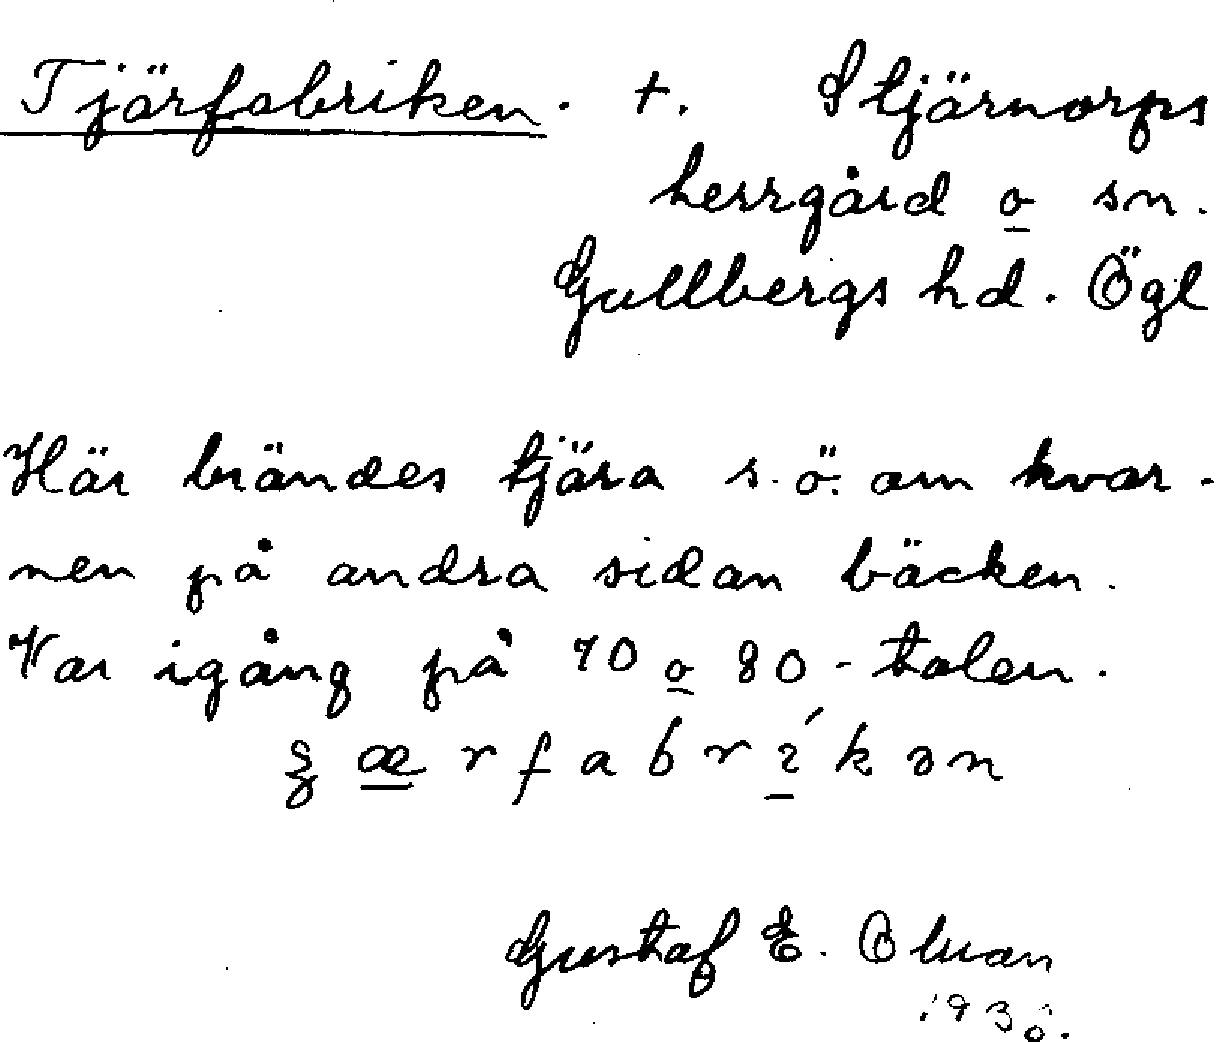 Tjärfabriken. t. Stjärnorps
herrgård o sn.
Gullbergs hd. Ögl
Här brändes tjära s.ö. om kvar-
nen på andra sidan bäcken.
Var igång på 70 o 80-talen.
Gustaf E.
193